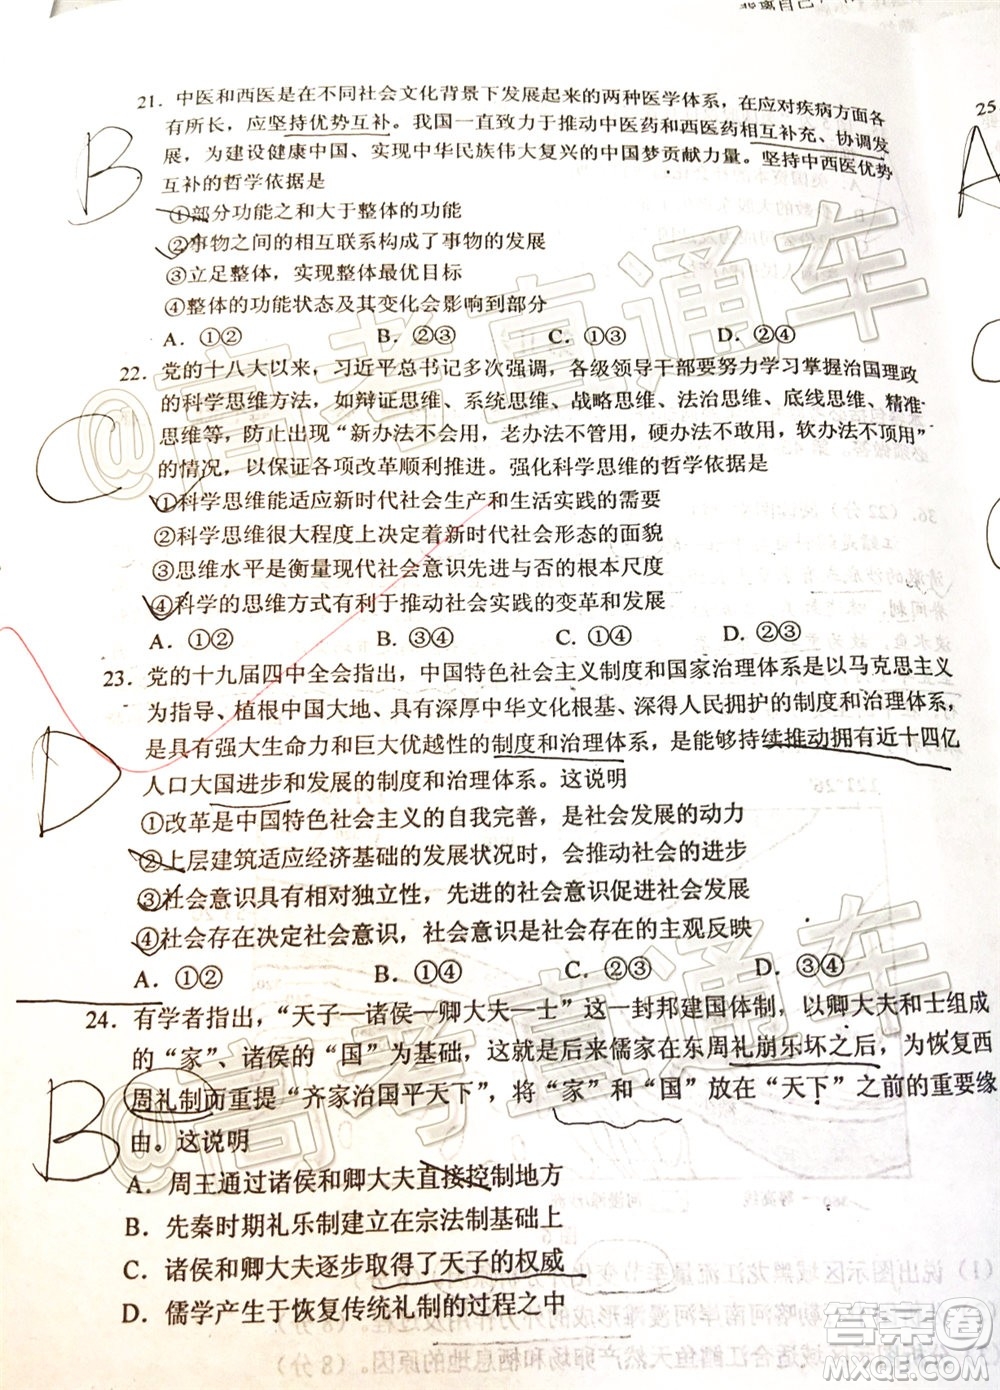 背离自己
21. 中医和西医是在不同社会文化背景下发展起来的两种医学体系，在应对疾病方面各
有所长，应坚持优势互补。我国一直致力于推动中医药和西医药相互补充、协调发
展，为建设健康中国、实现中华民族伟大复兴的中国梦贡献力量。坚持中西医优势
互补的哲学依据是
①部分功能之和大于整体的功能
②事物之间的相互联系构成了事物的发展
③立足整体，实现整体最优目标
④整体的功能状态及其变化会影响到部分
A. ①② B. ②③ C. ①③ D. ②④
22. 党的十八大以来，习近平总书记多次强调，各级领导干部要努力学习掌握治国理政
的科学思维方法，如辩证思维、系统思维、战略思维、法治思维、底线思维、精准
思维等，防止出现“新办法不会用，老办法不管用，硬办法不敢用，软办法不顶用”
的情况，以保证各项改革顺利推进。强化科学思维的哲学依据是
①科学思维能适应新时代社会生产和生活实践的需要
②科学思维很大程度上决定着新时代社会形态的面貌
③思维水平是衡量现代社会意识先进与否的根本尺度
④科学的思维方式有利于推动社会实践的变革和发展
A. ①② B. ③④ C. ①④ D. ②③
23. 党的十九届四中全会指出，中国特色社会主义制度和国家治理体系是以马克思主义
为指导、植根中国大地、具有深厚中华文化根基、深得人民拥护的制度和治理体系，
是具有强大生命力和巨大优越性的制度和治理体系，是能够持续推动拥有近十四亿
人口大国进步和发展的制度和治理体系。这说明
①改革是中国特色社会主义的自我完善，是社会发展的动力
②上层建筑适应经济基础的发展状况时，会推动社会的进步
③社会意识具有相对独立性，先进的社会意识促进社会发展
④社会存在决定社会意识，社会意识是社会存在的主观反映
A. ①② B. ①④ C. ②③ D. ③④
24. 有学者指出，“天子—诸侯—卿大夫—士”这一封邦建国体制，以卿大夫和士组成
的“家”、诸侯的“国”为基础，这就是后来儒家在东周礼崩乐坏之后，为恢复西
周礼制而重提“齐家治国平天下”，将“家”和“国”放在“天下”之前的重要缘
由。这说明
A. 周王通过诸侯和卿大夫直接控制地方
B. 先秦时期礼乐制度建立在宗法制基础上
C. 诸侯和卿大夫逐步取得了天子的权威
D. 儒学产生于恢复传统礼制的过程之中
B
C
D
B
A
25
@高考直通车
@高考直通车
答案圈
MXQE.COM